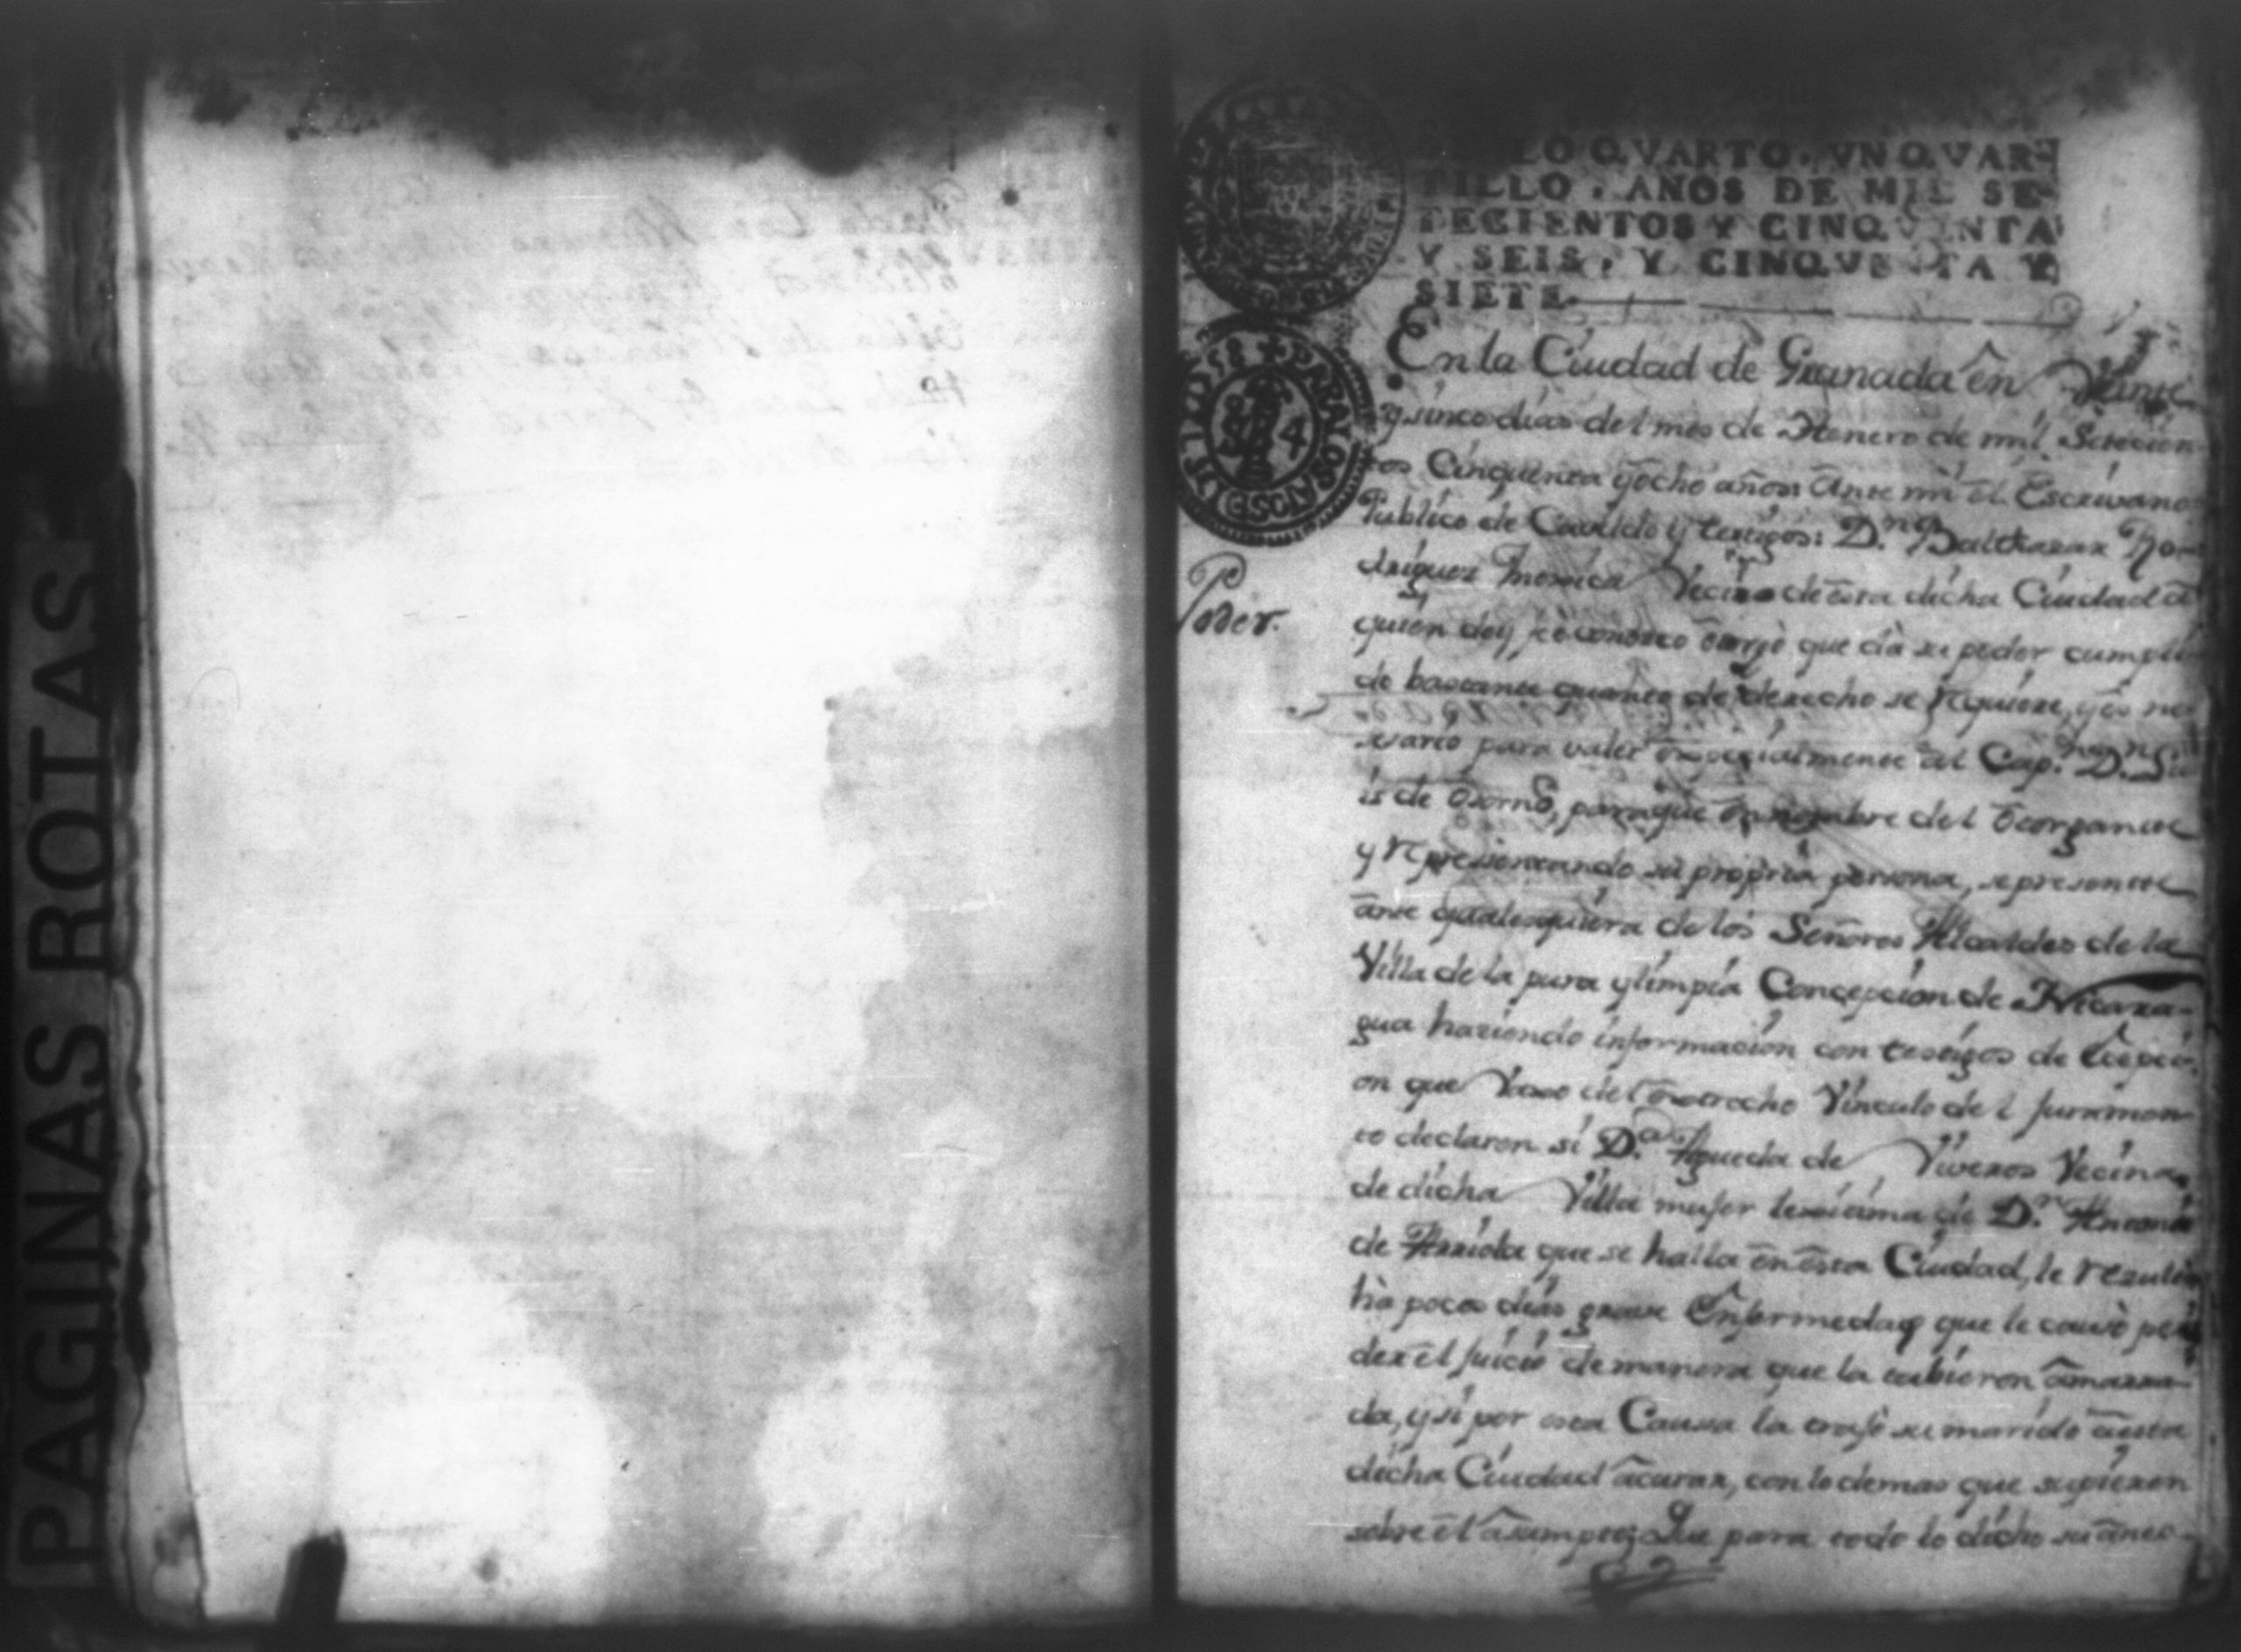 PAGINAS ROTAS
LO QVARTO, VN QVAR-
TILLO, AÑOS DE MIL SE-
TECIENTOS Y CINQVENTA
Y SEIS, Y CINQVENTA Y
SIETE.
En la Ciudad de Granada en Veinte
y sinco dias del mes de Henero de mil Setecien
tos Cinquenta y ocho años Ante mi el Escrivano
Publico de Cavildo y testigos: D.n Balthazar Ro-
driguez Vecino de esta dicha Ciudad a
Poder.
quien doy fe conosco otorgó que dá su poder cumpli
do bastante quanto de derecho se rrequiere, y es ne
sesario para valer especialmente al Cap.n D.n Lu
is de Osorno, para que en nombre del otorgante
y rrepresentando su propria persona, se presente
ante qualesquiera de los Señores Alcaldes de la
Villa de la pura y limpia Concepcion de Nicara-
gua haziendo informacion con testigos de
on que Vaxo del estrecho Vinculo del Juramen
to declaren si D.a Agueda de Viveros Vecina
de dicha Villa mujer lexitima de D.n Antonio
de Arriola que se halla en esta Ciudad, le rezultó
há pocos dias grave Enfermedad que le causó per
der el Juicio de manera que la tubieron amarra-
da, y si por esta Causa la trajo su marido a esta
dicha Ciudad a curar, con lo demas que supieren
sobre el asumpto; Que para todo lo dicho su anec-